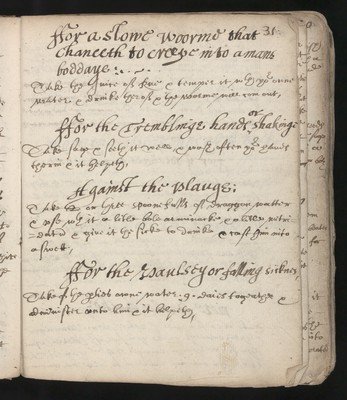 31
ffor a slowe woorme that
chanceth to creepe into a mans
boddaye
Take the iuice of Rue & temper it wth yor owne
water & drinke therof & the woorme will com out,
or
ffor the Tremblinge hands shakinge
Take sage & seeth it well & wash often yor hands
therin & it helpeth,
Against the Plauge:
Take two or three spoonefulls of draggon watter
& with it a litle bole armoniacke & a litle
& give it the sicke to drinke & cast him into
a swett,
ffor the Paulsey or falling sicknes,
Take of the owne water 9 daies together &
administer unto him & it helpeth,